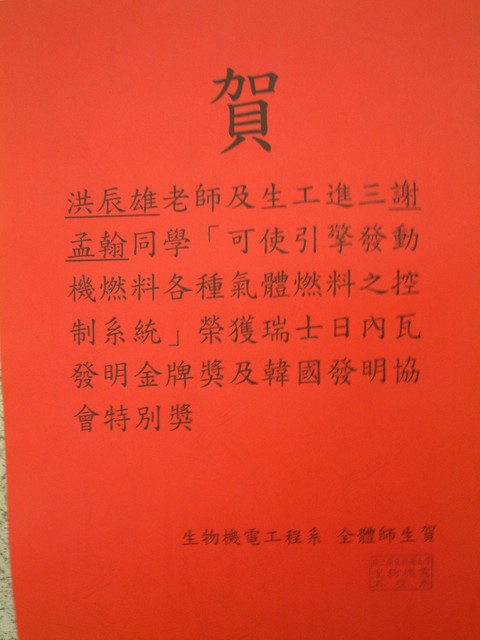 賀
洪辰雄老師及生工進三謝
孟翰同學「可使引擎發動
機燃料各種氣體燃料之控
制系統」榮獲瑞士日內瓦
發明金牌獎及韓國發明協
會特別獎
生物機電工程系 全體師生賀